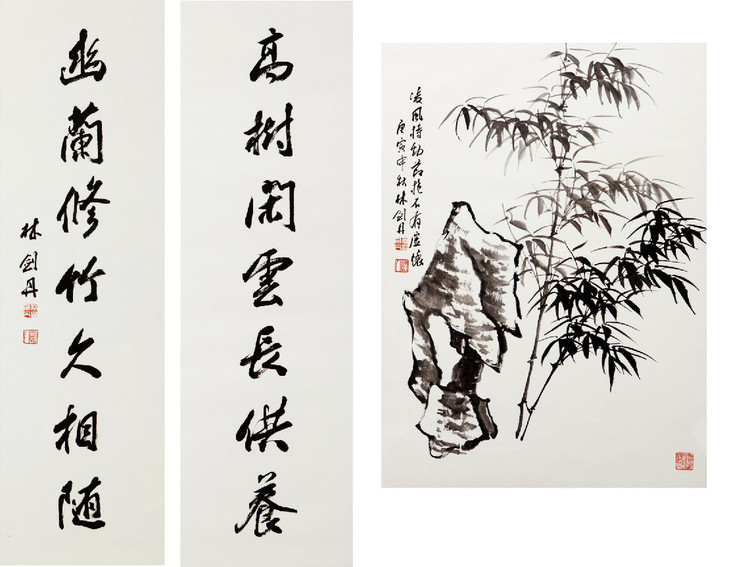 高樹閑雲長供養
幽蘭修竹久相随
林剑丹
凌風持勁節抱石有虛懷
庚寅中秋林剑丹